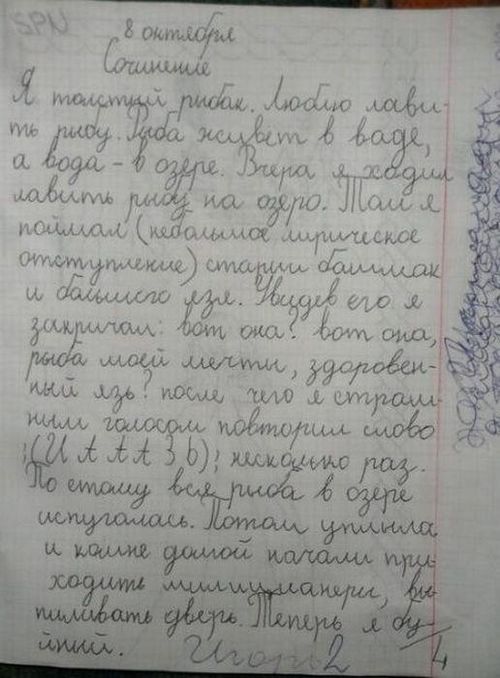 SPN
8 октября
Сочинение
Я толстый рыбак. Люблю лави-
ть рыбу. Рыба жывёт в ваде,
а вода - в озере. Вчера я ходил
лавить рыбу на озеро. Там я
поймал (небольшое лирическое
отступление) старый башмак
и большого язя. Увидев его я
закричал: вот она? вот она,
рыба моей мечты, здоровен-
ный язь? после чего я страш-
ным голосом повторил слово
¡(И А А А З Ь)¡ несколько раз.
По етому вся рыба в озере
испугалась. Потом уплыла
и комне домой начали при-
ходить милицманеры, вы-
пиливать дверь. Теперь я бу-
йний.
Игорь 2
4